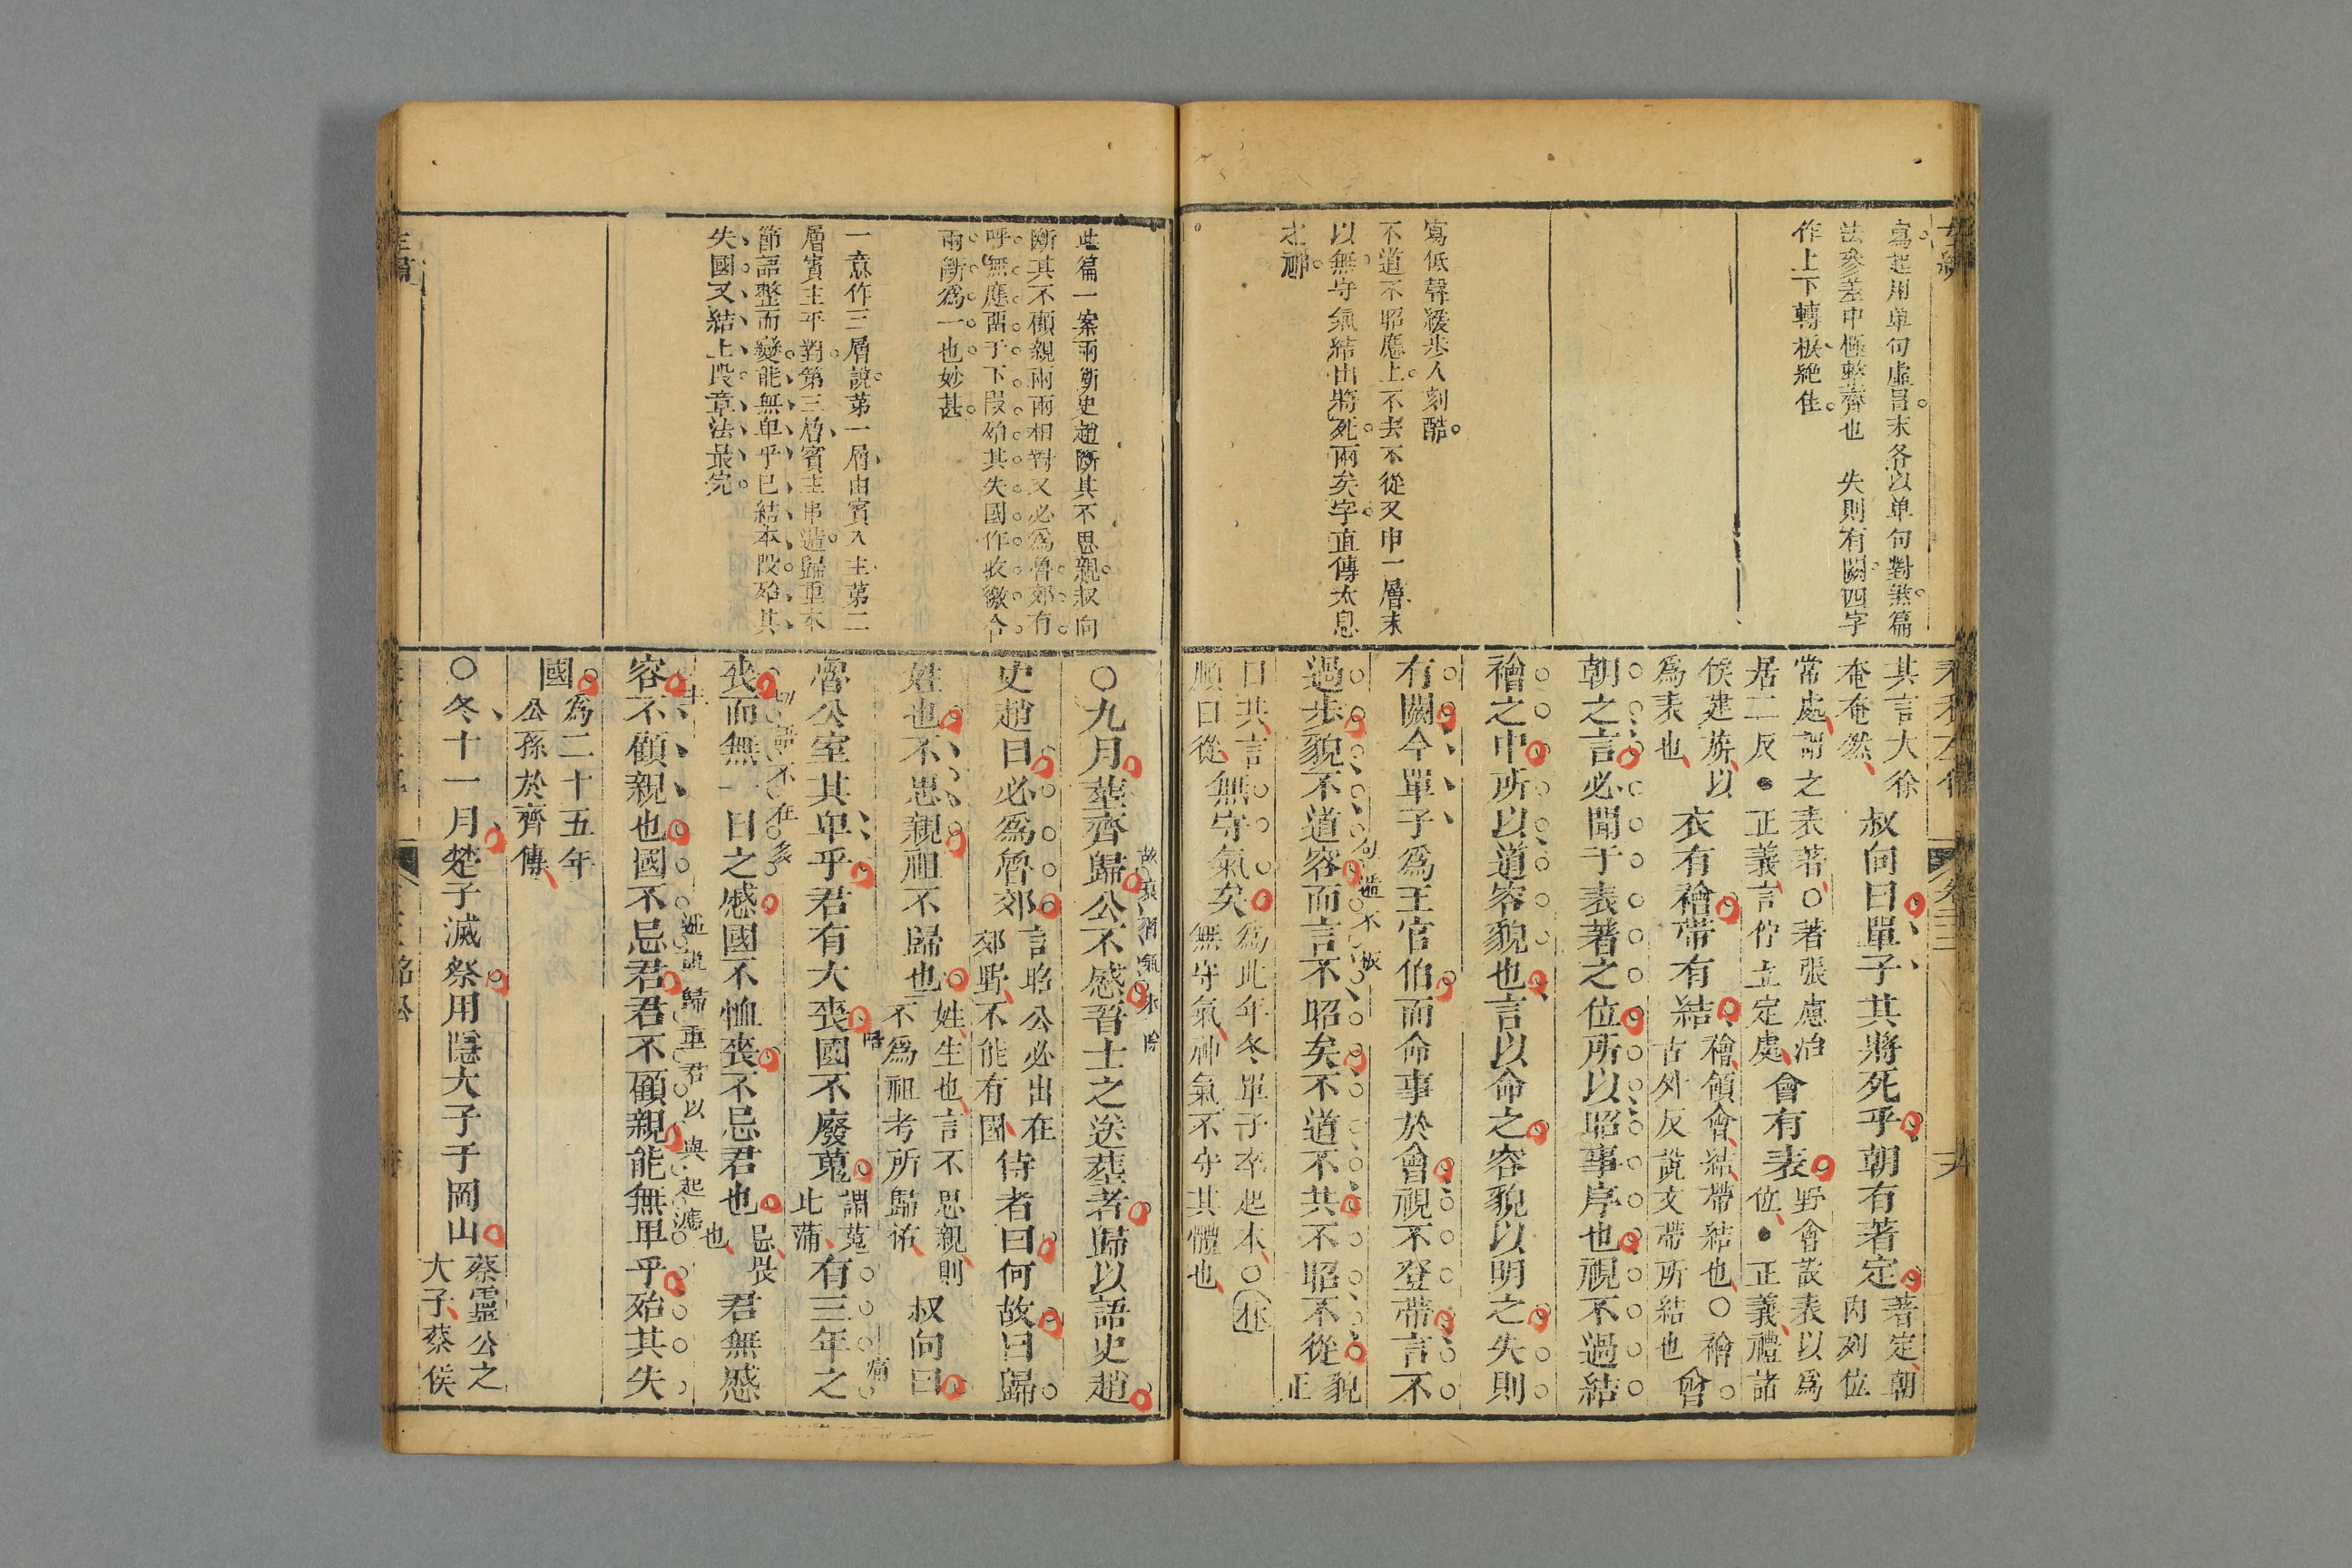 寫起用单句虛冒末各以单句對煞篇
法參差中極整齊也　失則有闕四字
作上下轉棙絶佳
寫低聲緩步人刻酷
不道不昭應上不去不從又申一層末
以無守氣結出將死兩矣字直傳太息
之神
其言大徐
奄奄然
叔向曰單子其將死乎朝有著定
著定朝
内列位
常處謂之表著○著張慮治
居二反●正義言佇立定處
會有表
野會設表以爲
位●正義禮諸
侯建旂以
爲表也
衣有襘帶有結
襘領會結帶結也○襘
古外反説文帶所結也
會
朝之言必聞于表著之位所以昭事序也視不過結
襘之中所以道容貌也言以命之容貌以明之失則
有闕今單子爲王官伯而命事於會視不登帶言不
過步貌不道容而言不昭矣不道不共不昭不從
貌
正
句法不板
曰共言
順曰從
無守氣矣
爲此年冬單子卒起本○
無守氣神氣不守其體也
此篇一案兩斷史趙斷其不思親叔向
斷其不顧親兩兩相對又必爲魯郊有
呼無應畱于下段殆其失國作收繳合
兩斷爲一也妙甚
一意作三層說第一層由賓入主第二
層賓主平對第三層賓主串遞歸重本
節語整而變能無卑乎已結本段殆其
失國又結上段章法最完
○九月葬齊歸公不慼晉士之送葬者歸以語史趙
史趙曰必爲魯郊
言昭公必出在
郊野不能有國
侍者曰何故曰歸
姓也不思親祖不歸也
姓生也言不思親則
不爲祖考所歸祐
叔向曰
魯公室其卑乎君有大喪國不廢蒐
謂蒐
比蒲
有三年之
喪而無一日之慼國不恤喪不忌君也
忌畏
也
君無慼
容不顧親也國不忌君君不顧親能無卑乎殆其失
國
爲二十五年
公孫於齊傳
○冬十一月楚子滅蔡用隱大子于岡山
蔡靈公之
大子蔡侯